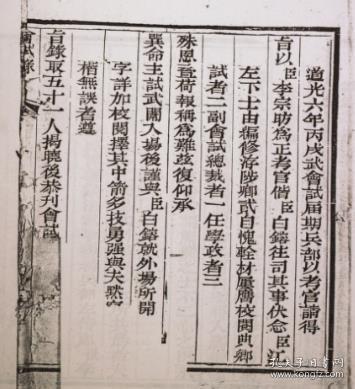 道光六年丙戌武會試屆期兵部以考官請得
旨以臣李宗昉為正考官偕臣白鎔往司其事伏念臣江
左下士由編修洊陟卿貳自愧輇材屢膺校閱典鄉
試者二副會試總裁者一任學政者三
殊恩疊荷報稱為難茲復仰承
巽命主試武闈入場後謹與臣白鎔就外場所開
字詳加校閱擇其中箭多技勇强與夫默寫
楷無誤者遵
旨錄取五十一人揭曉後恭刊會試
會試錄
孔夫子旧书网